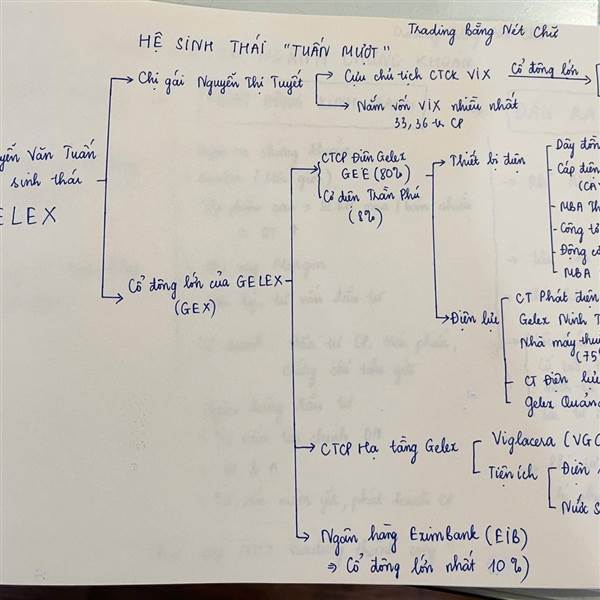 Trading Bằng Nét Chữ
HỆ SINH THÁI "TUẤN MƯỢT"
Chị gái Nguyễn Thị Tuyết
Cựu chủ tịch CTCK VIX
Cổ đông lớn
Nắm vốn VIX nhiều nhất
33,36 tr CP
Văn Tuấn
sinh thái
ELEX
Cổ đông lớn của GELEX
(GEX)
CTCP Điện Gelex
GEE (80%)
Cơ điện Trần Phú
(8%)
Thiết bị điện
Dây đồn
Cáp điện
(CA
MBA Th
Công tơ
Động cơ
MBA
Điện lực
CT Phát điện
Gelex Ninh T
Nhà máy thu
(75%
CT Điện lực
Gelex Quản
CTCP Hạ tầng Gelex
Viglacera (VGC
Tiện ích
Điện
Nước S
Ngân hàng EximBank (EIB)
⇒ Cổ đông lớn nhất 10%)